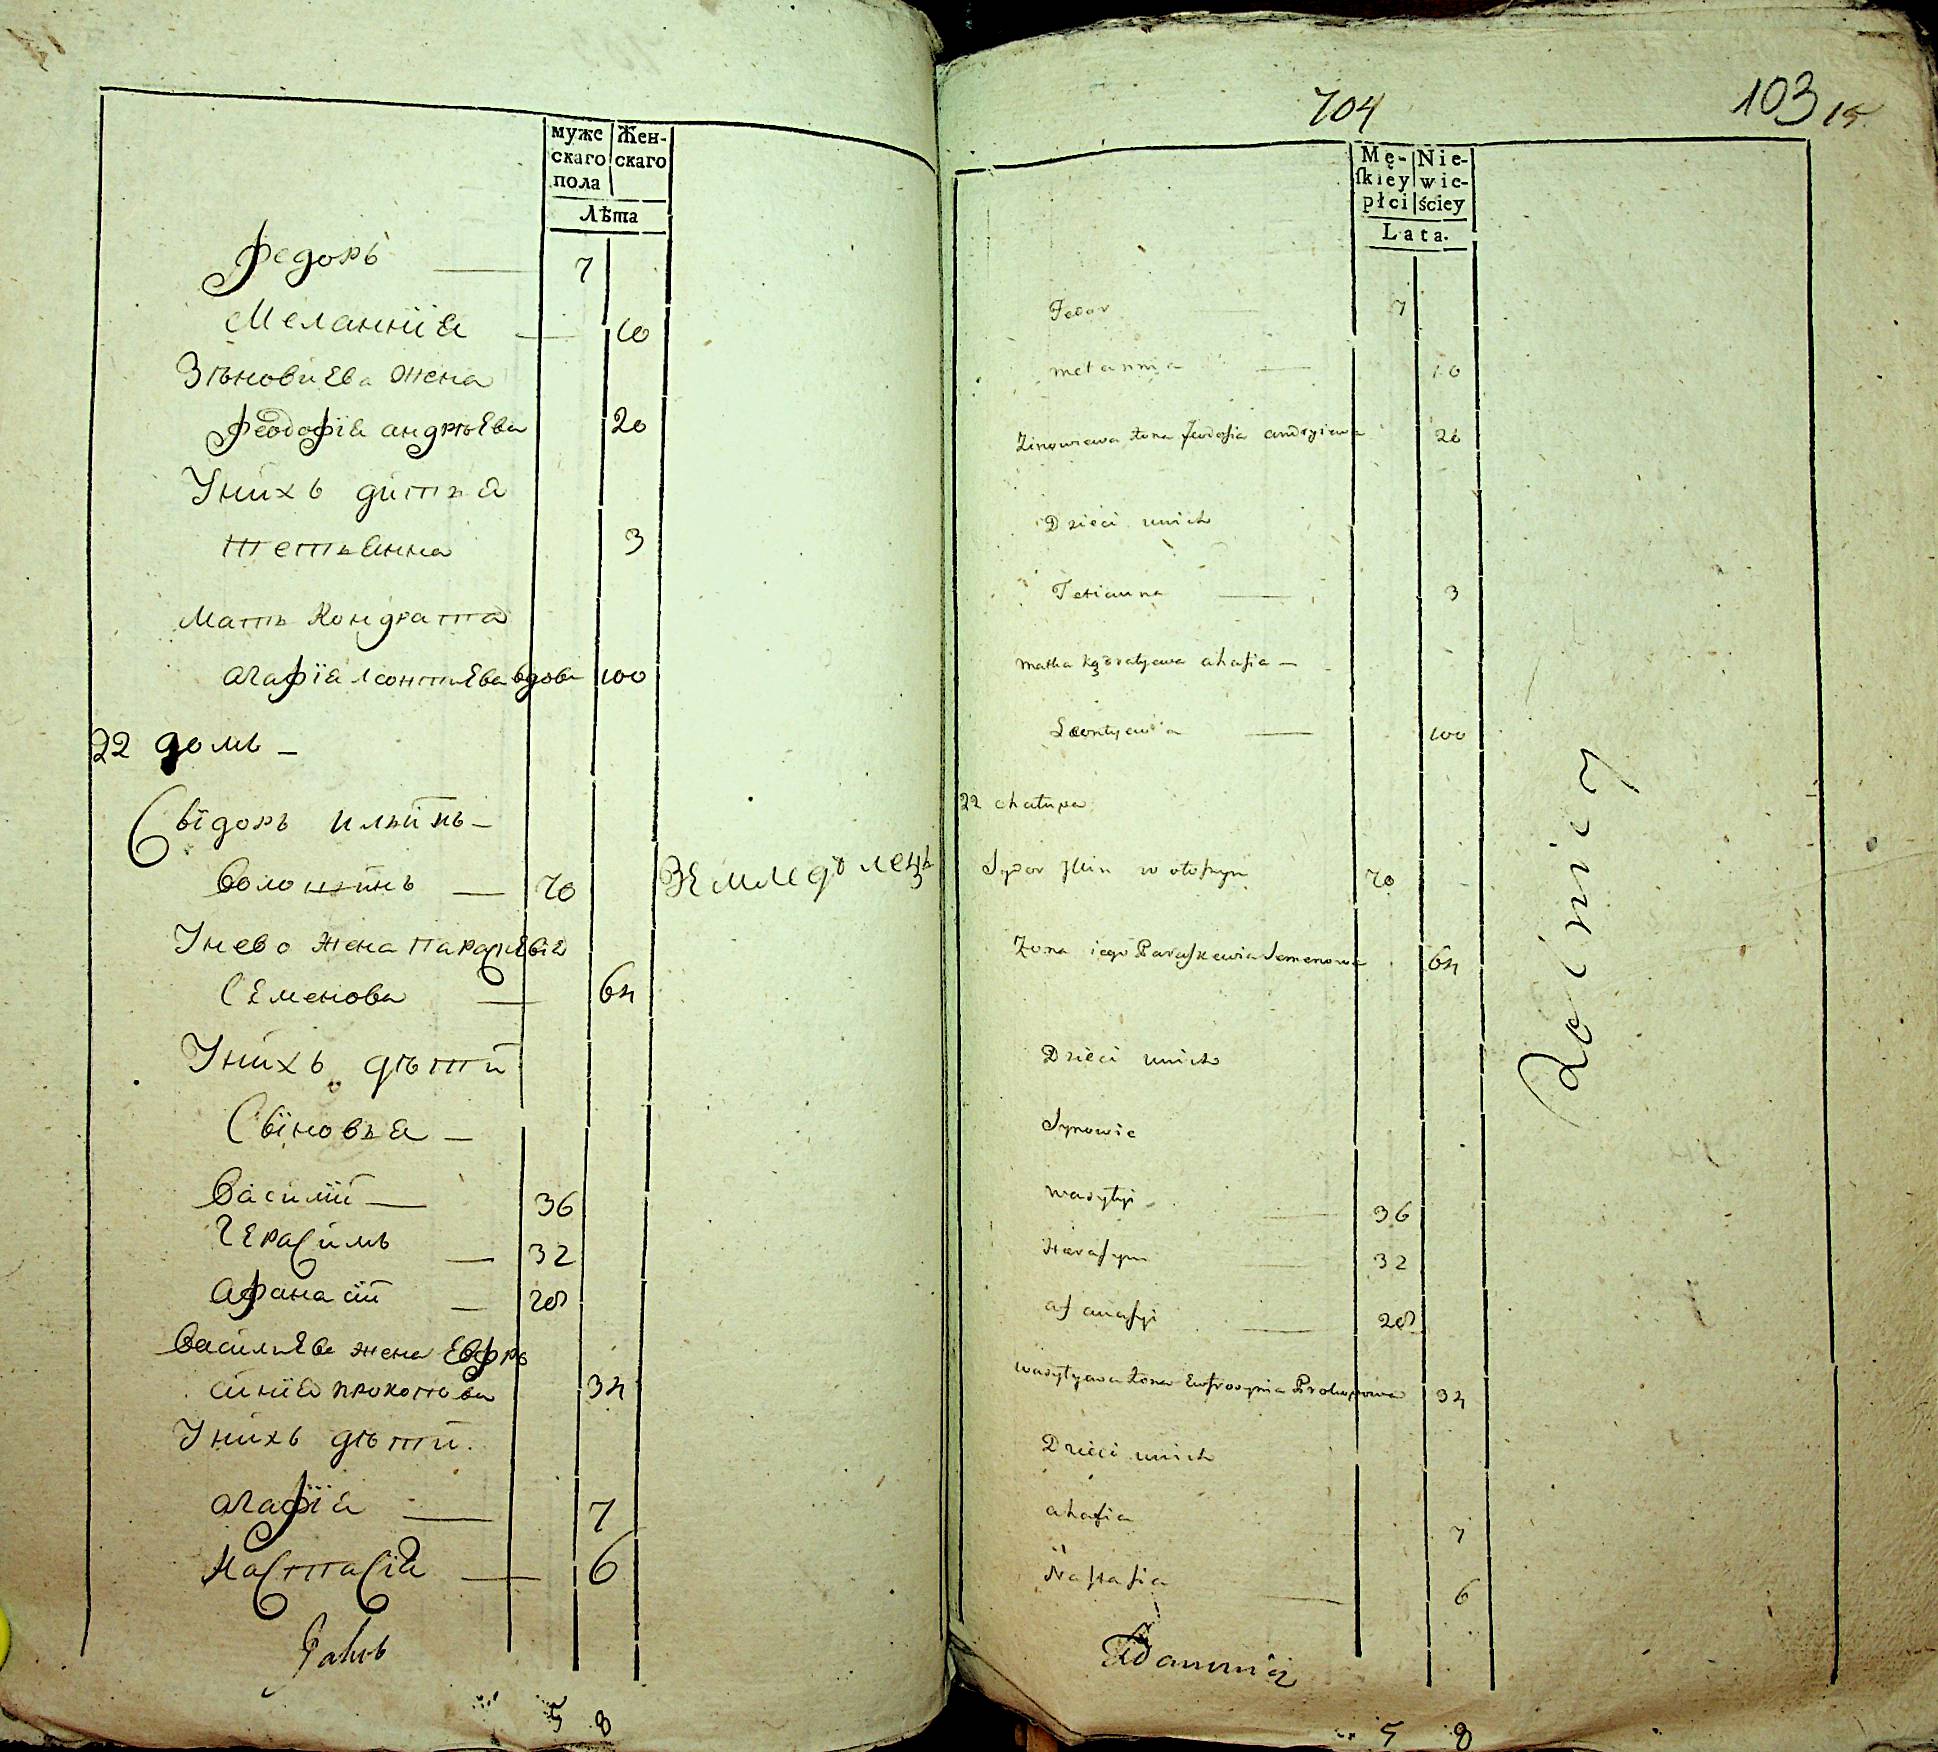 муже
скаго
пола
Жен-
скаго
Лѣта
Федоръ — 7
Меланнїя — 10
Зѣновиева жена
Феодосїя андрѣева 20
Унихъ дитья
Тетьянна 3
Мать Кондрата
агафїя леонтьева вдова 100
22 домъ —
Свїдоръ ильинъ —
Волошинъ — 70 Земледѣлецъ
Унево жена параскевїя
Семенова — 64
Унихъ дѣти
Свїновья —
Василїй — 36
Герасимъ — 32
Афанасїй — 28
Василиева жена Евфро
синїя прокопова 34
Унихъ дѣти.
агафїя — 7
Настасїя — 6
5 8
704
103 15
Mę-
ſkiey
płci
Nie-
wie-
ściey
Lata.
Fedor — 7
melannia — 10
Zinowiewa żona Feodosia andryiewa 20
Dzieci unich
Tetianna — 3
matka Kądratyewa ahafia —
Leontyewa — 100
22 chałupa
Sydor Ilin wołoszyn 70
Żona iego Paraskewia Semenowa 64
Rolnicy
Dzieci unich
Synowie
wasylyi — 36
Harasym — 32
afanasyi — 28
wasylyewa żona Eufrosynia Prokopowa 34
Dzieci unich
ahafia 7
Nastasia — 6
5 8